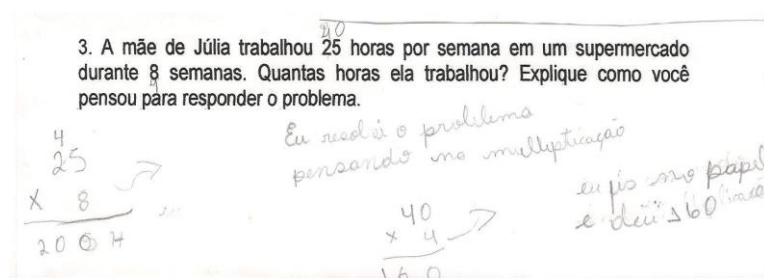 40
3. A mãe de Júlia trabalhou 25 horas por semana em um supermercado
durante 8 semanas. Quantas horas ela trabalhou? Explique como você
4
pensou para responder o problema.
Eu resolvi o problema
pensando na multiplicação
4
25
x 8
200 H
40
x 4
160
eu fis no papel
e deu 160